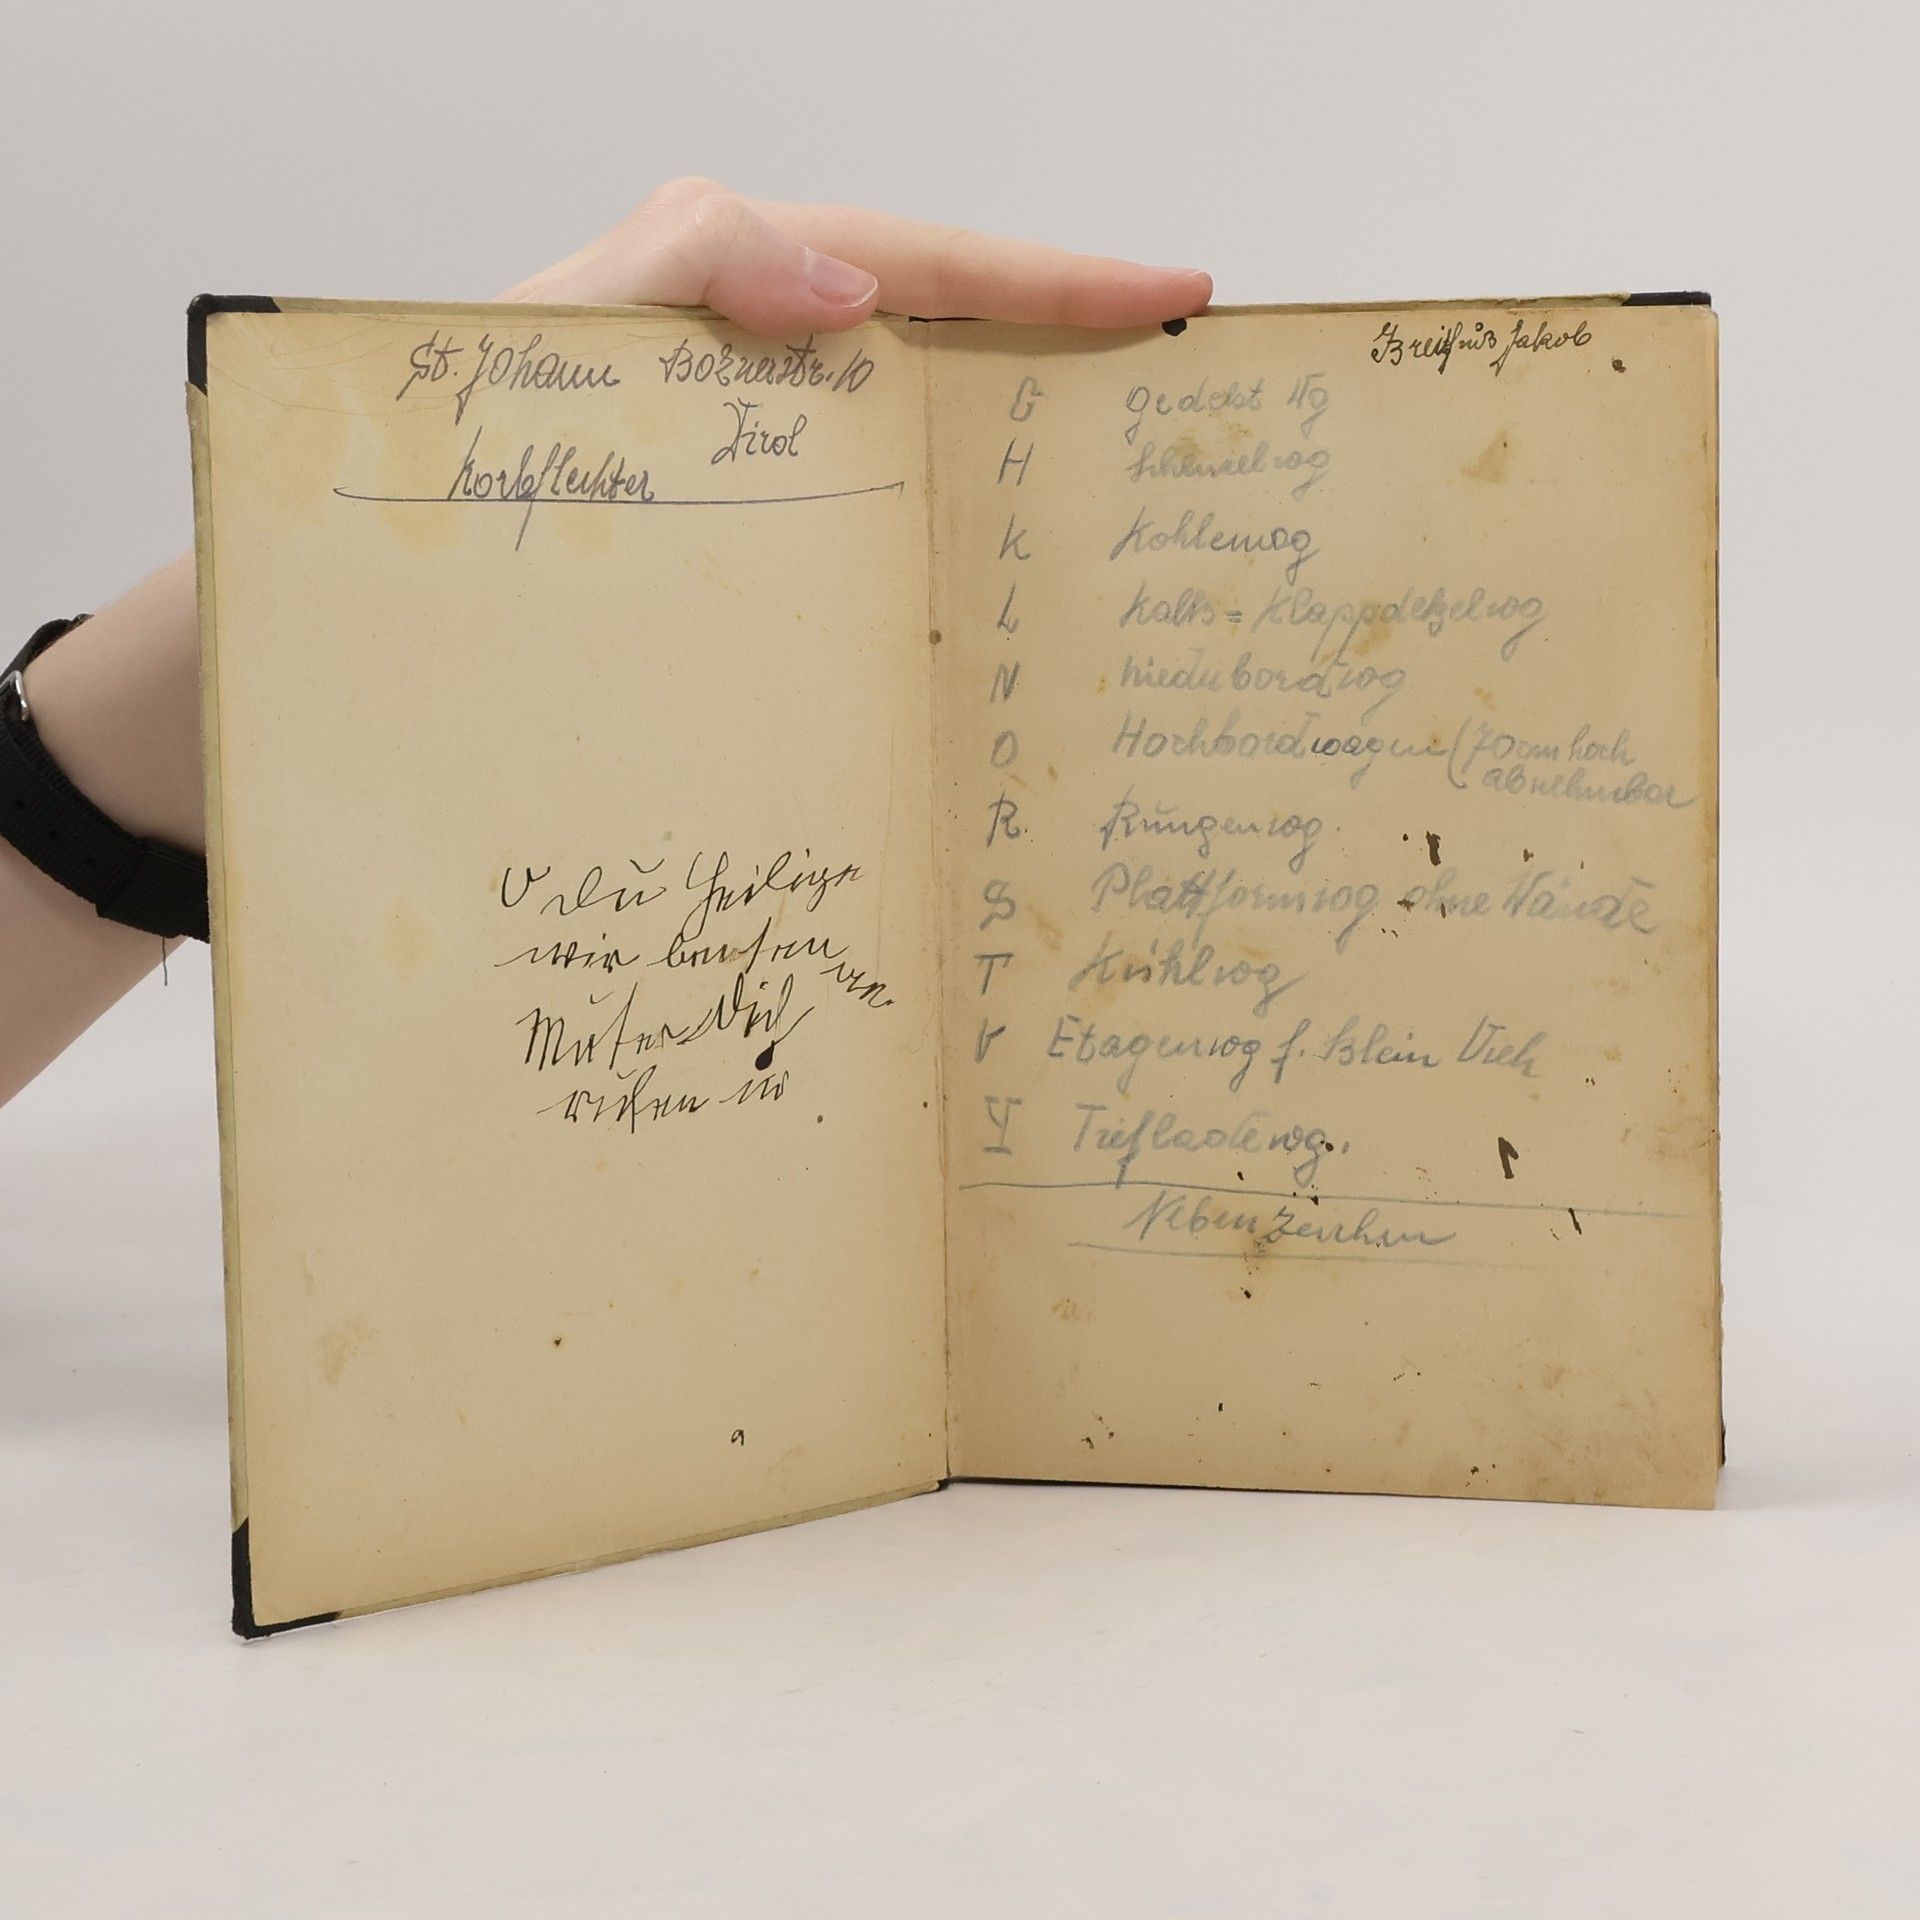 St. Johann Boznerstr. 10
Tirol
Korbflechter
O du heilige
wir
Muter dich
rufen
a
Breitfuß Jakob
G gedekt Wg
H Schemelwg
K Kohlenwg
L Kalk= Klappdekelwg
N Niederbordwg
O Hochbordwagen (70cm hoch
abnehmbar
R Rungenwg.
S Plattformwg ohne Wände
T Kühlwg
V Etagenwg f. klein Vieh
Y Tiefladewg.
Nebenzeichen